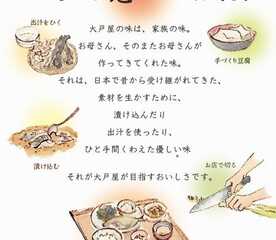 出汁をひく
大戸屋の味は、家族の味。
お母さん、そのまたお母さんが
作ってきてくれた味。
手づくり豆腐
それは、日本で昔から受け継がれてきた、
素材を生かすために、
漬け込んだり
出汁を使ったり、
ひと手間くわえた優しい味
漬け込む
お店で切る
それが大戸屋が目指すおいしさです。